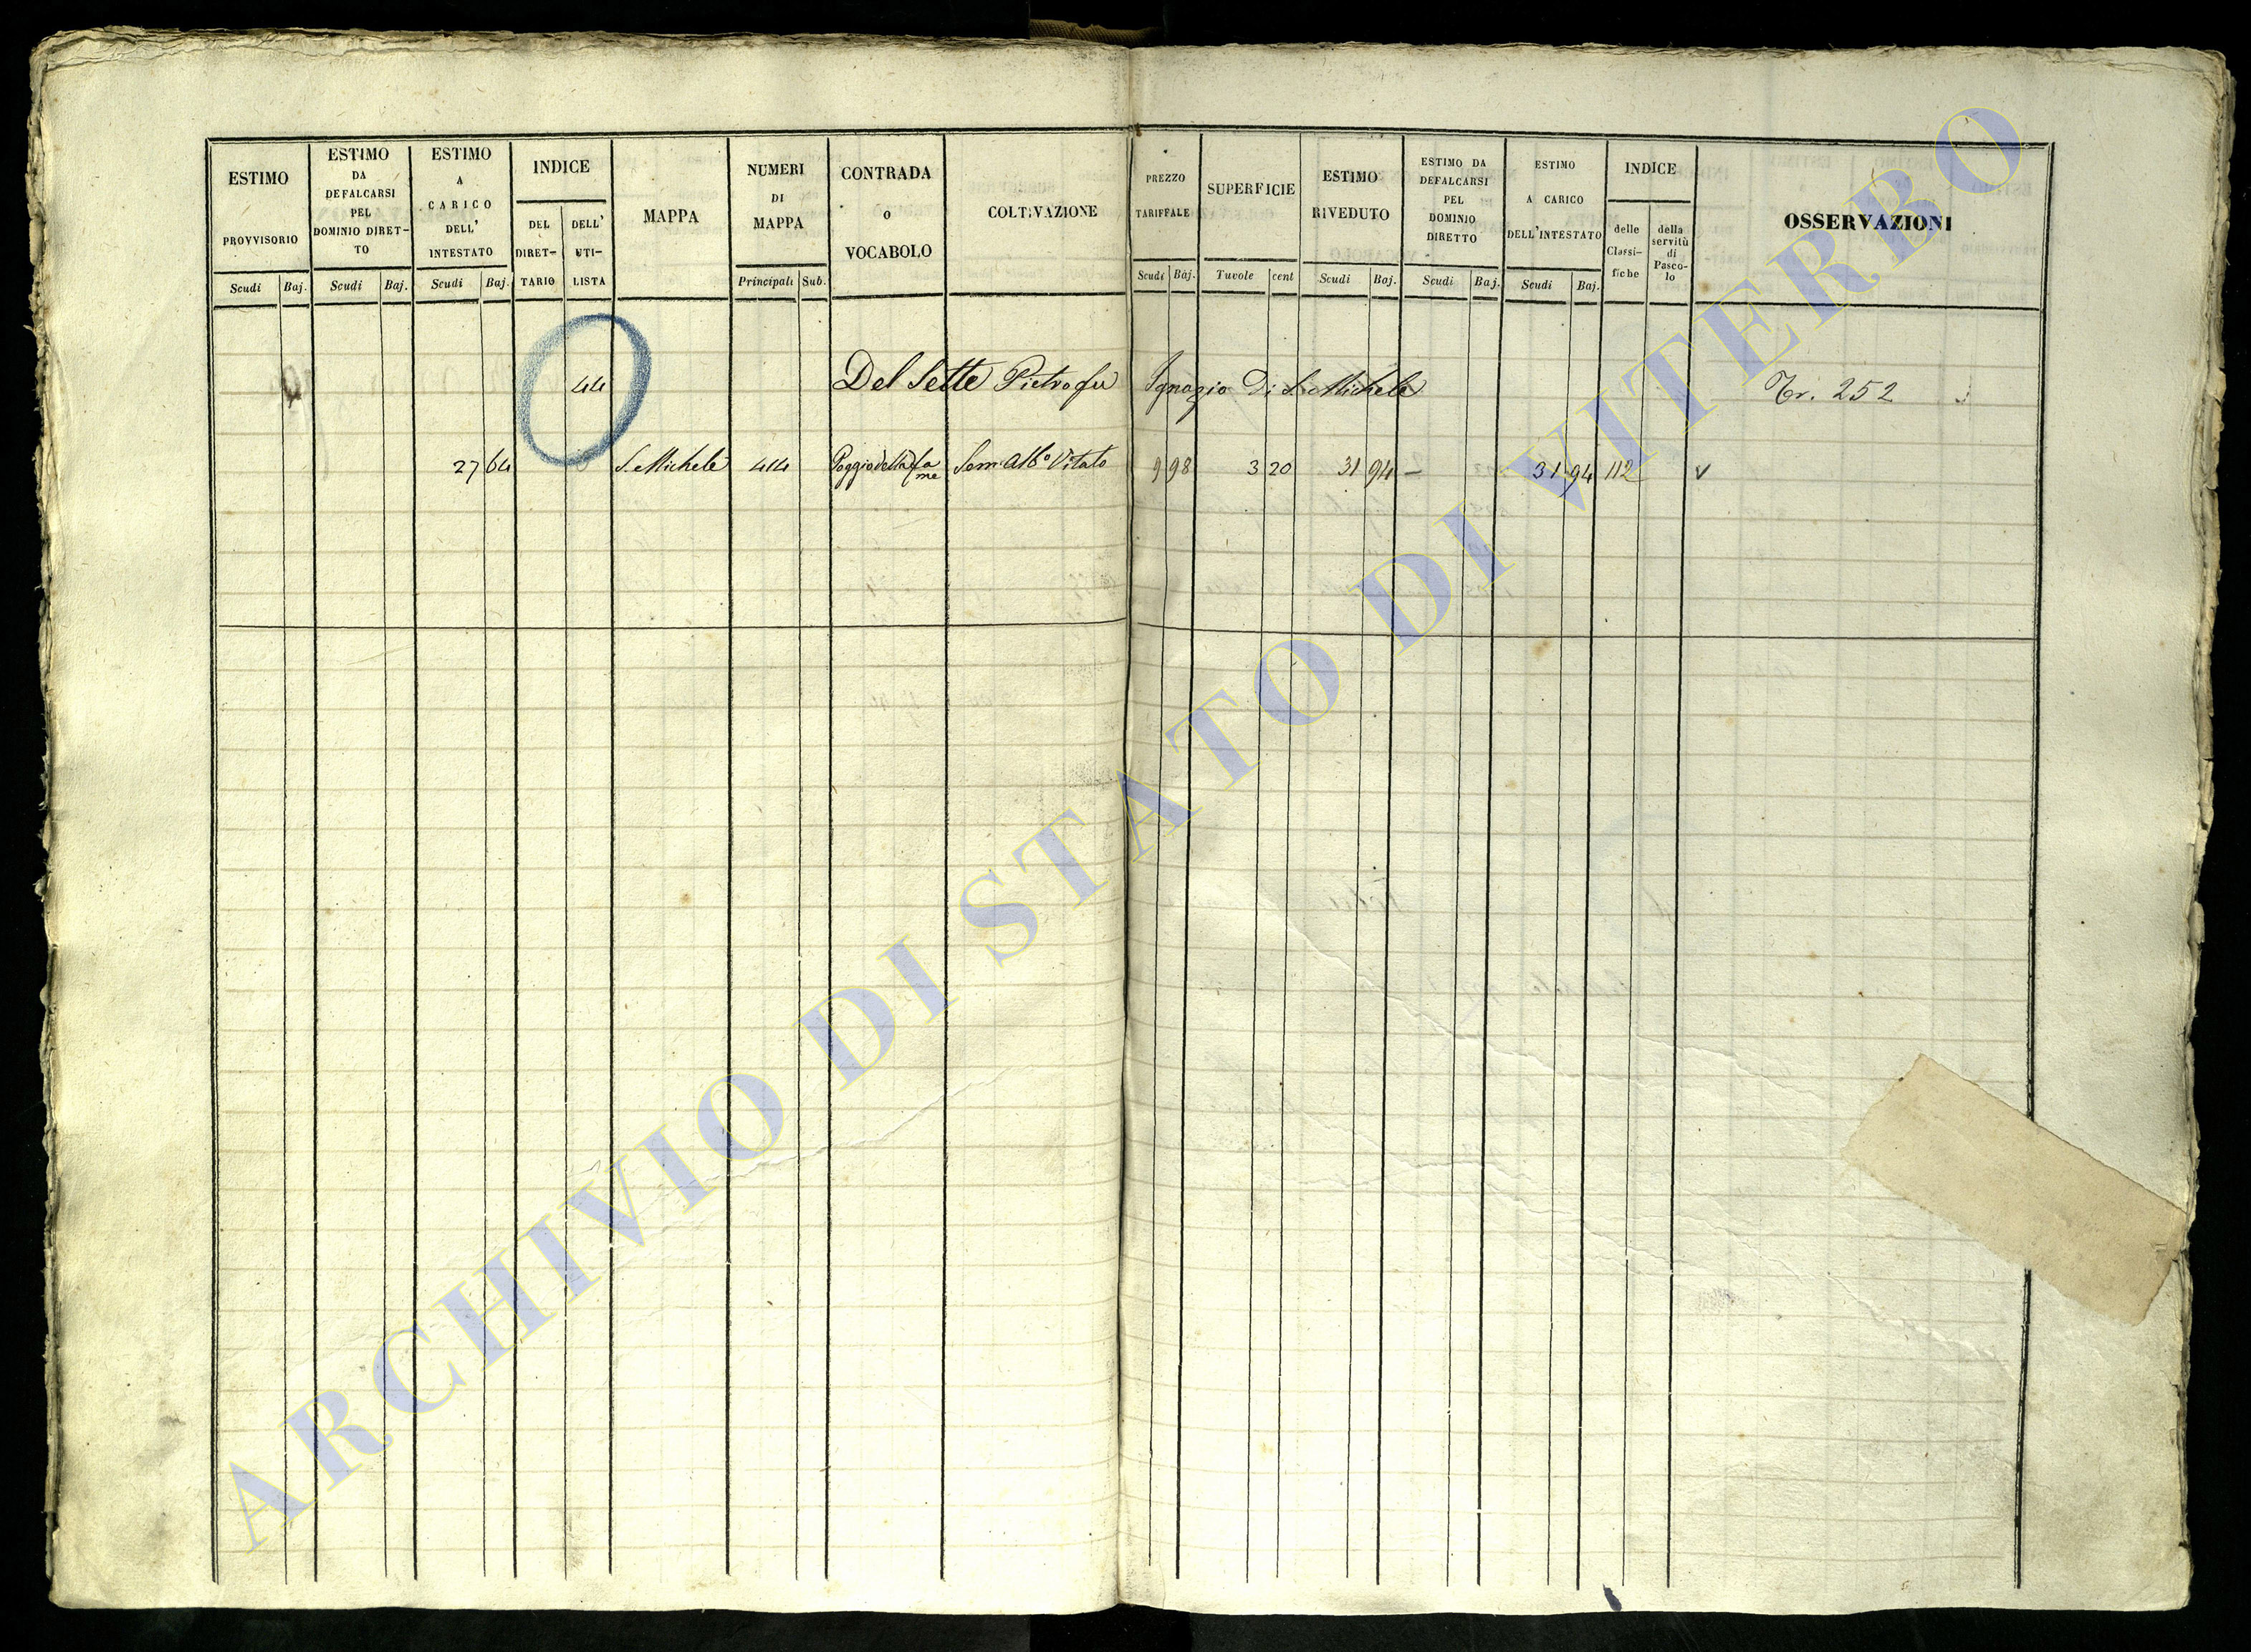 ESTIMO PROVVISORIO Scudi Baj.
ESTIMO DA DEFALCARSI PEL DOMINIO DIRET-TO Scudi Baj.
ESTIMO A CARICO DELL' INTESTATO Scudi Baj.
INDICE DEL DIRET-TARIO DELL' UTI-LISTA
MAPPA
NUMERI DI MAPPA Principali Sub.
CONTRADA O VOCABOLO
COLTIVAZIONE
PREZZO TARIFFALE Scudi Baj.
SUPERFICIE Tavole cent
ESTIMO RIVEDUTO Scudi Baj.
ESTIMO DA DEFALCARSI PEL DOMINIO DIRETTO Scudi Baj.
ESTIMO A CARICO DELL'INTESTATO Scudi Baj.
INDICE delle Classi-fiche della servitù di Pasco-lo
OSSERVAZIONI
44 Del Sette Pietro fu Ignazio di S. Michele Tr. 252
27 64 S. Michele 414 Poggio della fa me Sem. Alb.o Vitato 9 98 3 20 31 94 – 31 94 112 v
ARCHIVIO DI STATO DI VITERBO